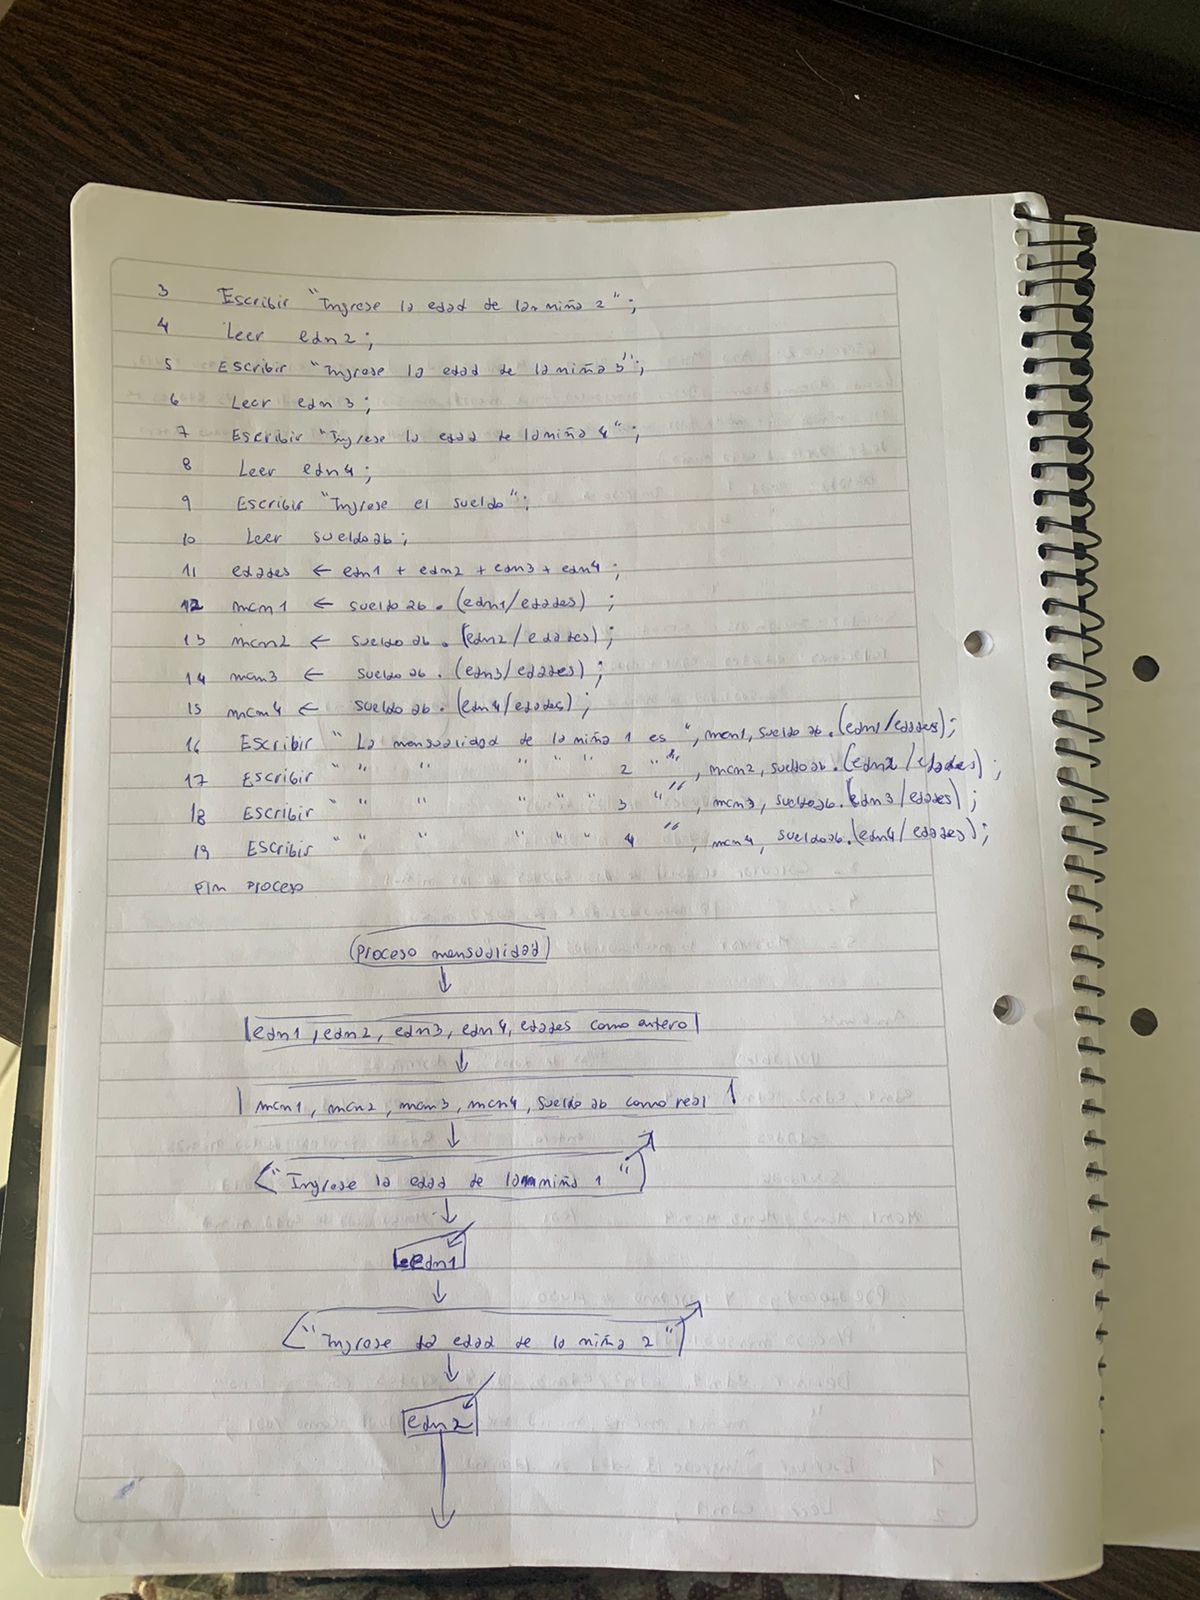 3 Escribir "Ingrese la edad de la niña 2";
4 Leer edn2;
5 Escribir "Ingrese la edad de la niña 3";
6 Leer edn3;
7 Escribir "Ingrese la edad de la niña 4";
8 Leer edn4;
9 Escribir "Ingrese el sueldo";
10 Leer sueldoab;
11 edades ← edn1 + edn2 + edn3 + edn4;
12 mcn1 ← sueldoab . (edn1/edades) ;
13 mcn2 ← sueldoab . (edn2/edades) ;
14 mcn3 ← sueldoab . (edn3/edades) ;
15 mcn4 ← sueldoab . (edn4/edades) ;
16 Escribir "La mensualidad de la niña 1 es ", mcn1, sueldoab.(edn1/edades);
17 Escribir " " " " " " 2 " ", mcn2, sueldoab.(edn2/edades);
18 Escribir " " " " " " 3 " ", mcn3, sueldoab.(edn3/edades);
19 Escribir " " " " " " 4 " ", mcn4, sueldoab.(edn4/edades);
Fin Proceso
Proceso mensualidad
edn1, edn2, edn3, edn4, edades como entero
mcn1, mcn2, mcn3, mcn4, sueldoab como real
"Ingrese la edad de la niña 1"
edn1
"Ingrese la edad de la niña 2"
edn2